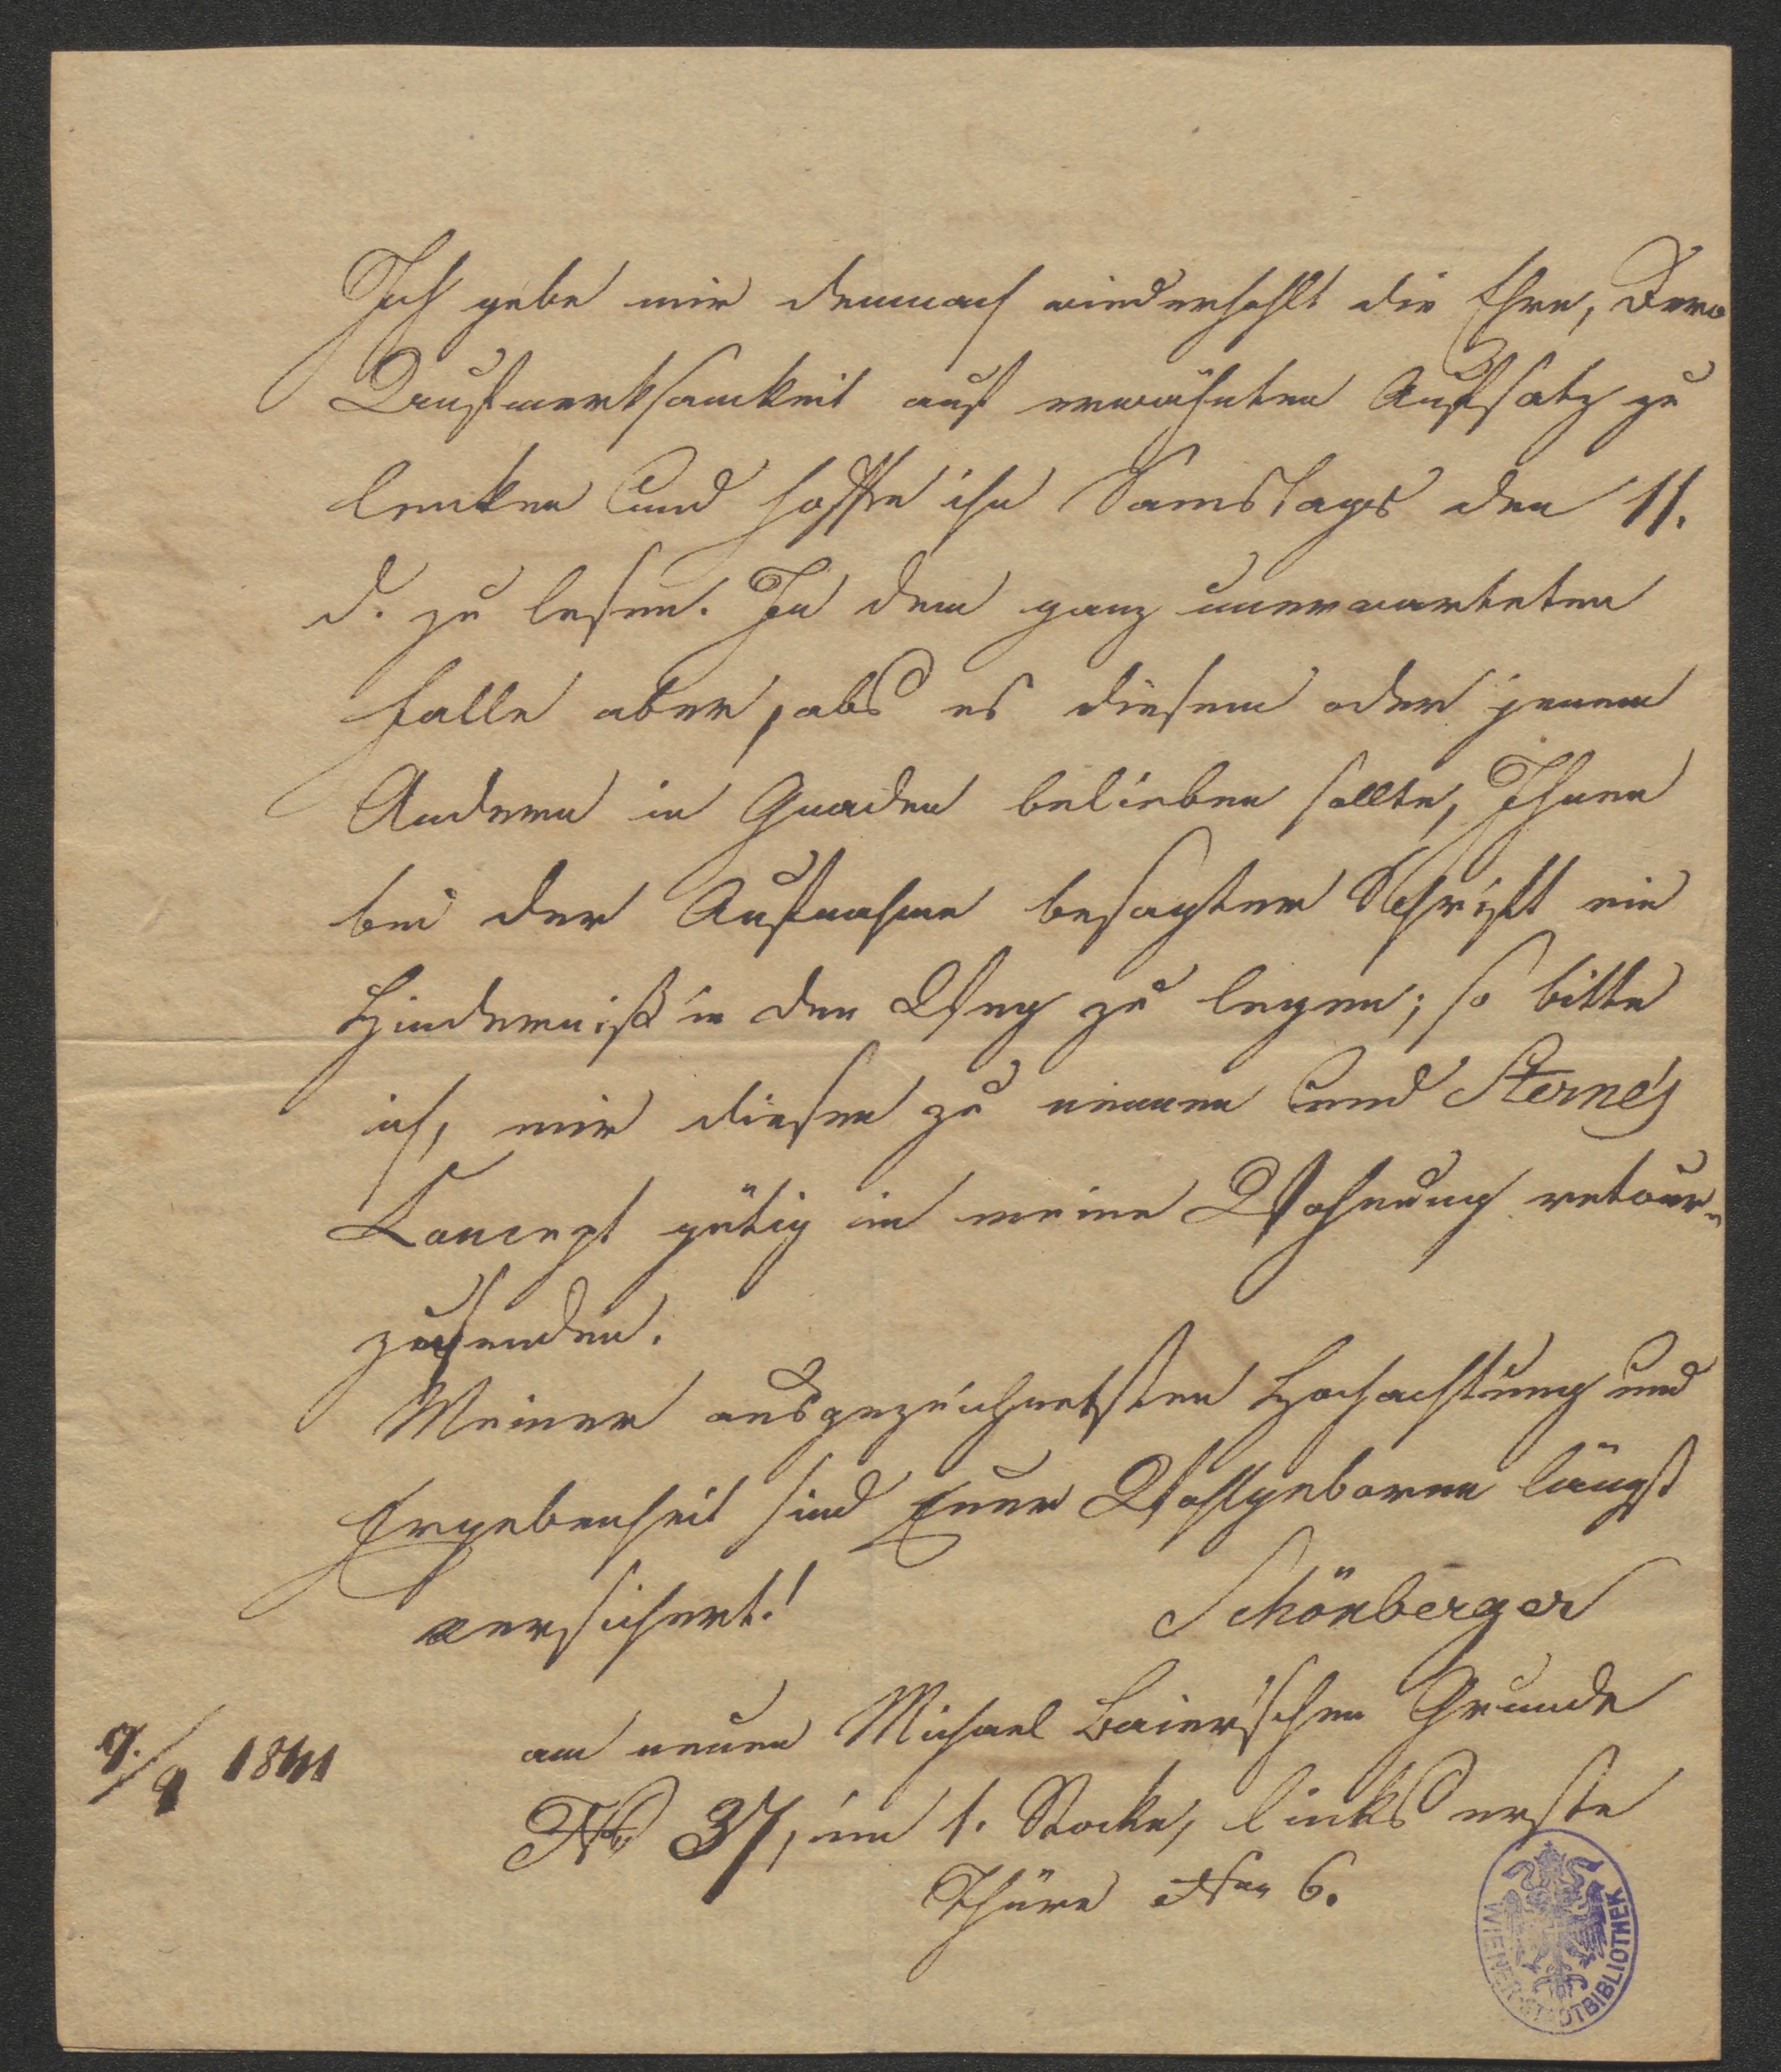 Ich gebe mir demnach wiederhohlt die Ehre, Dero
Aufmerksamkeit auf erwähnten Aufsatz zu
lenken und hoffe ihn Samstags den 11.
d. zu lesen. In dem ganz unerwarteten
Falle aber, als es diesem oder jenem
Andern in Gnaden belieben sollte, Ihnen
bei der Aufnahme besagter Schrift ein
Hinderniß in den Weg zu legen; so bitte
ich, mir diesen zu nennen und Sterne's
Concept gütig in meine Wohnung retour=
zusenden.
Meiner ausgezeichnetsten Hochachtung und
Ergebenheit sind Euer Wohlgeboren längst
versichert!
Schönberger
am neuen Michael Baier'schen Grunde
No 37, im 1. Stocke, links erste
Thüre Nro 6.
9./9 1841
WIENER STADTBIBLIOTHEK